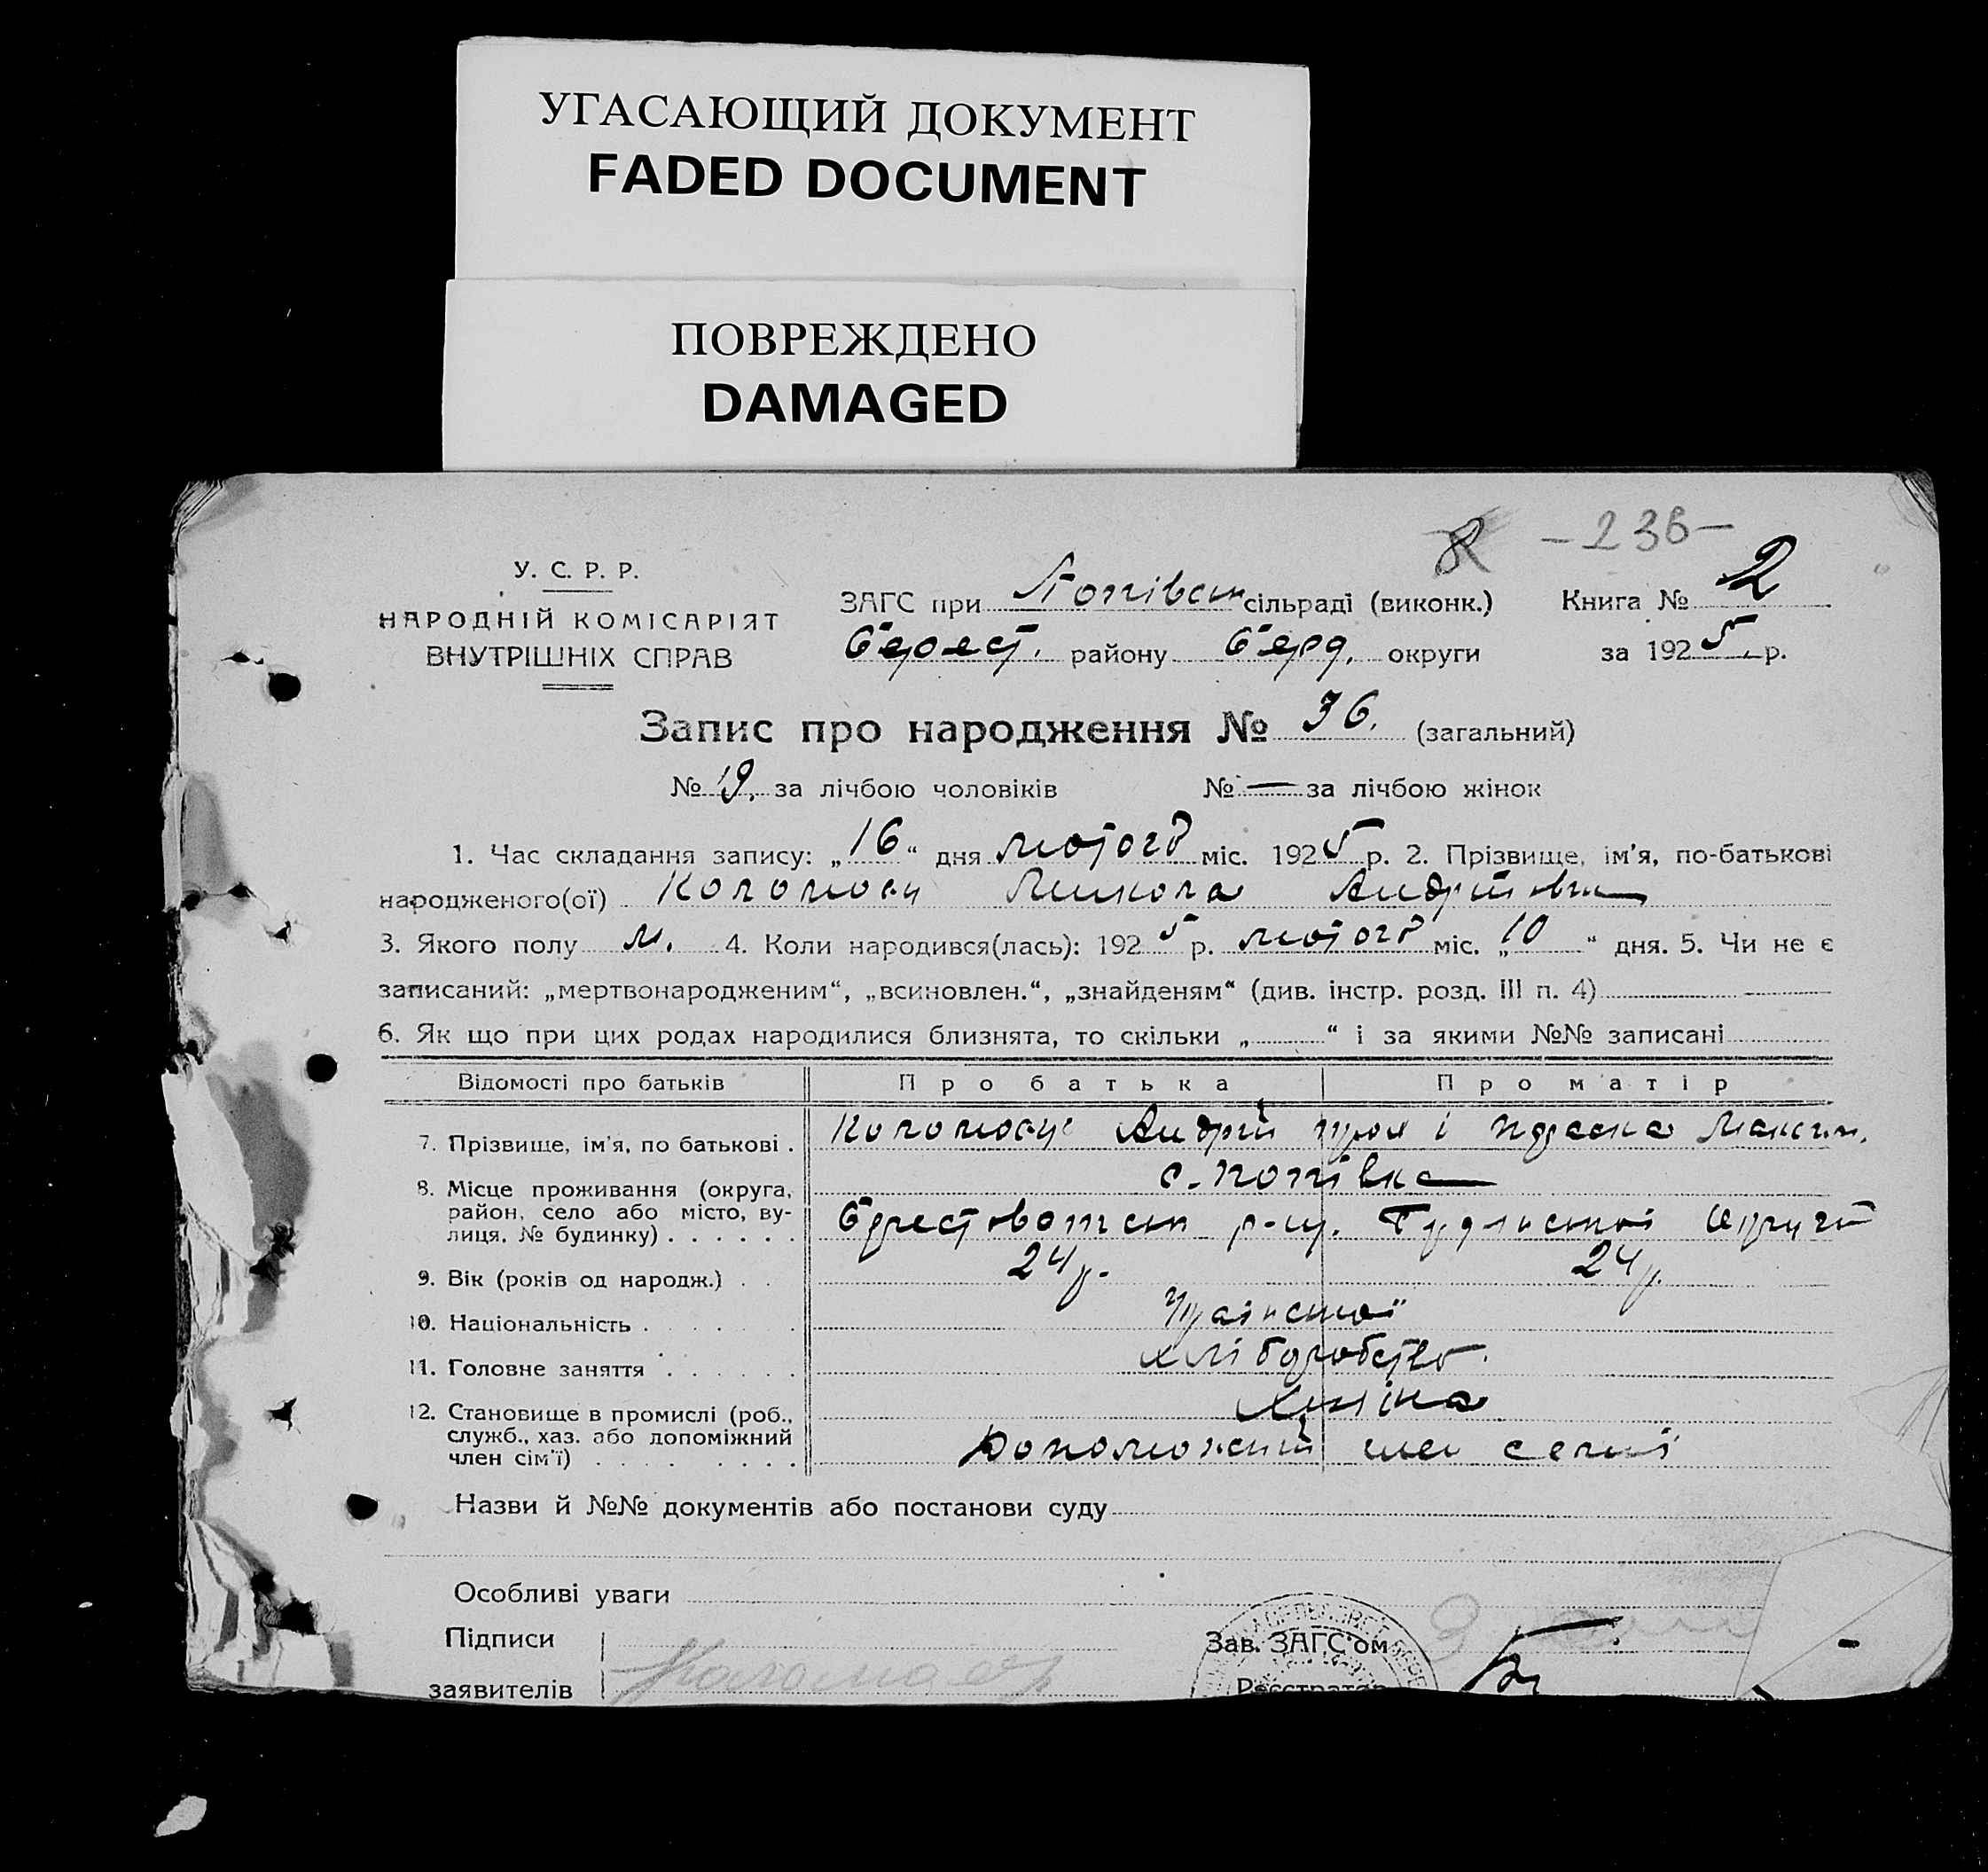 УГАСАЮЩИЙ ДОКУМЕНТ
FADED DOCUMENT
ПОВРЕЖДЕНО
DAMAGED
-236-
У. С. Р. Р.
НАРОДНІЙ КОМІСАРІЯТ
ВНУТРІШНІХ СПРАВ
ЗАГС при Попівськ сільраді (виконк.) Книга № 2
Берест. району Берд. округи за 1925 р.
Запис про народження № 36. (загальний)
№ 19. за лічбою чоловіків № — за лічбою жінок
1. Час складання запису: „16“ дня лютого міс. 1925 р. 2. Прізвище, ім'я, по-батькові
народженого(ої) Коломоєць Микола Андрійович
3. Якого полу м. 4. Коли народився(лась): 1925 р. лютого міс. „10“ дня. 5. Чи не є
записаний: „мертвонародженим“, „всиновлен.“, „знайденям“ (див. інстр. розд. III п. 4)
6. Як що при цих родах народилися близнята, то скільки „ “ і за якими №№ записані
Відомості про батьків Про батька Про матір
7. Прізвище, ім'я, по батькові . Коломоєць Андрій і Максим.
8. Місце проживання (округа, с. Попівка
район, село або місто, ву-
лиця, № будинку) . . . . . . р-ну. округи
9. Вік (років од народж.) . . 24 р. 24 р.
10. Національність . . . . .
11. Головне заняття . . . . . . хліборобство.
12. Становище в промислі (роб.,
служб., хаз. або допоміжний
член сім'ї) . . . . . . . . . член семї
Назви й №№ документів або постанови суду
Особливі уваги
Підписи Зав. ЗАГС'ом
заявителів Реєстратор